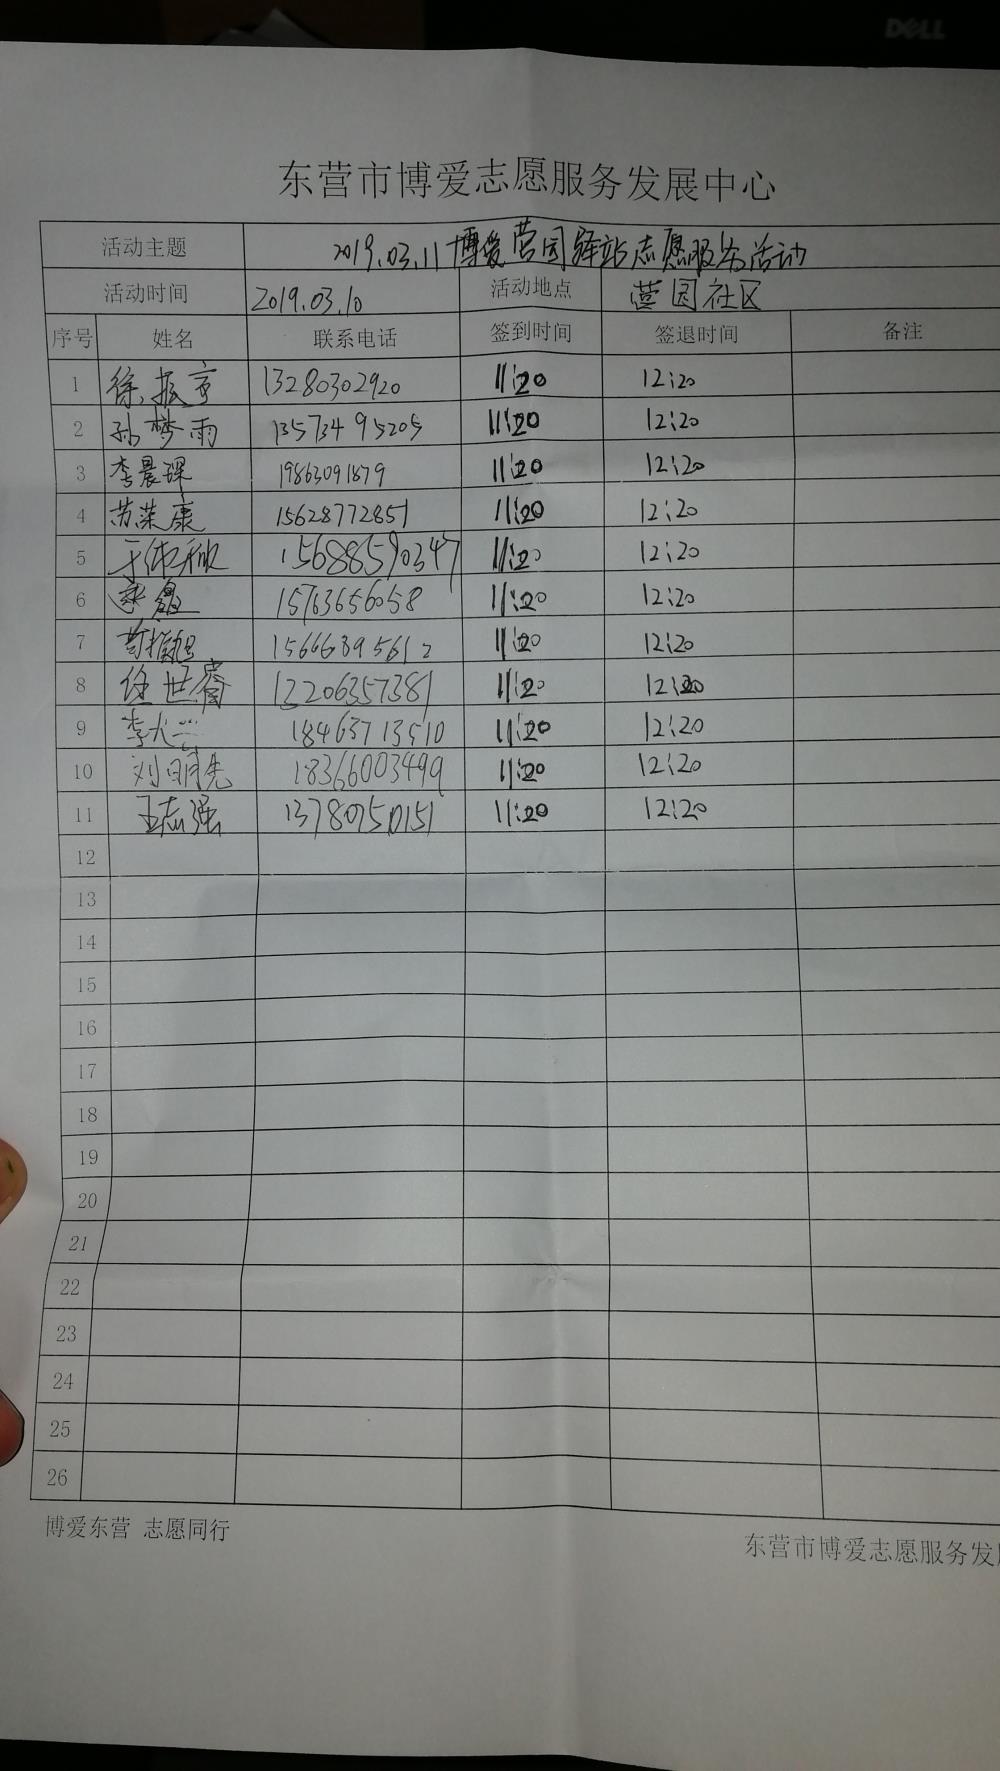 DELL
东营市博爱志愿服务发展中心
活动主题 2019.03.11博爱营园驿站志愿服务活动
活动时间 2019.03.10 活动地点 营园社区
序号 姓名 联系电话 签到时间 签退时间 备注
1 徐振京 13280302920 11:20 12:20
2 孙梦雨 13573495205 11:20 12:20
3 李晨琛 19863091879 11:20 12:20
4 苏荣康 15628772851 11:20 12:20
5 15688590347 11:20 12:20
6 15763656058 11:20 12:20
7 15666395612 11:20 12:20
8 13206357381 11:20 12:20
9 18463713510 11:20 12:20
10 刘明先 18366003499 11:20 12:20
11 王志强 13780750151 11:20 12:20
12
13
14
15
16
17
18
19
20
21
22
23
24
25
26
博爱东营 志愿同行
东营市博爱志愿服务发